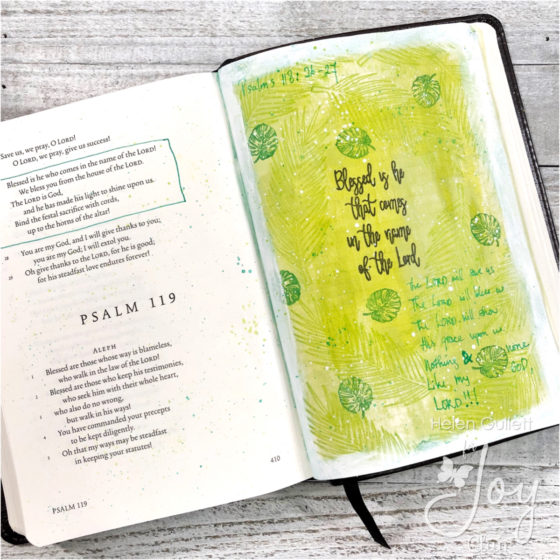 Save us, we pray, O LORD!
O LORD, we pray, give us success!
Blessed is he who comes in the name of the LORD!
We bless you from the house of the LORD.
The LORD is God,
and he has made his light to shine upon us.
Bind the festal sacrifice with cords,
up to the horns of the altar!
28 You are my God, and I will give thanks to you;
you are my God; I will extol you.
29 Oh give thanks to the LORD, for he is good;
for his steadfast love endures forever!
PSALM 119
ALEPH
1 Blessed are those whose way is blameless,
who walk in the law of the LORD!
2 Blessed are those who keep his testimonies,
who seek him with their whole heart,
3 who also do no wrong,
but walk in his ways!
4 You have commanded your precepts
to be kept diligently.
5 Oh that my ways may be steadfast
in keeping your statutes!
410
PSALM 119
Psalms 118: 26-27
Blessed is he
that comes
in the name
of the Lord
The LORD will save us
The LORD will bless us
The LORD will show
His grace upon us
Nothing & none
Like my GOD,
LORD!!!
Helen Gullett
Joy